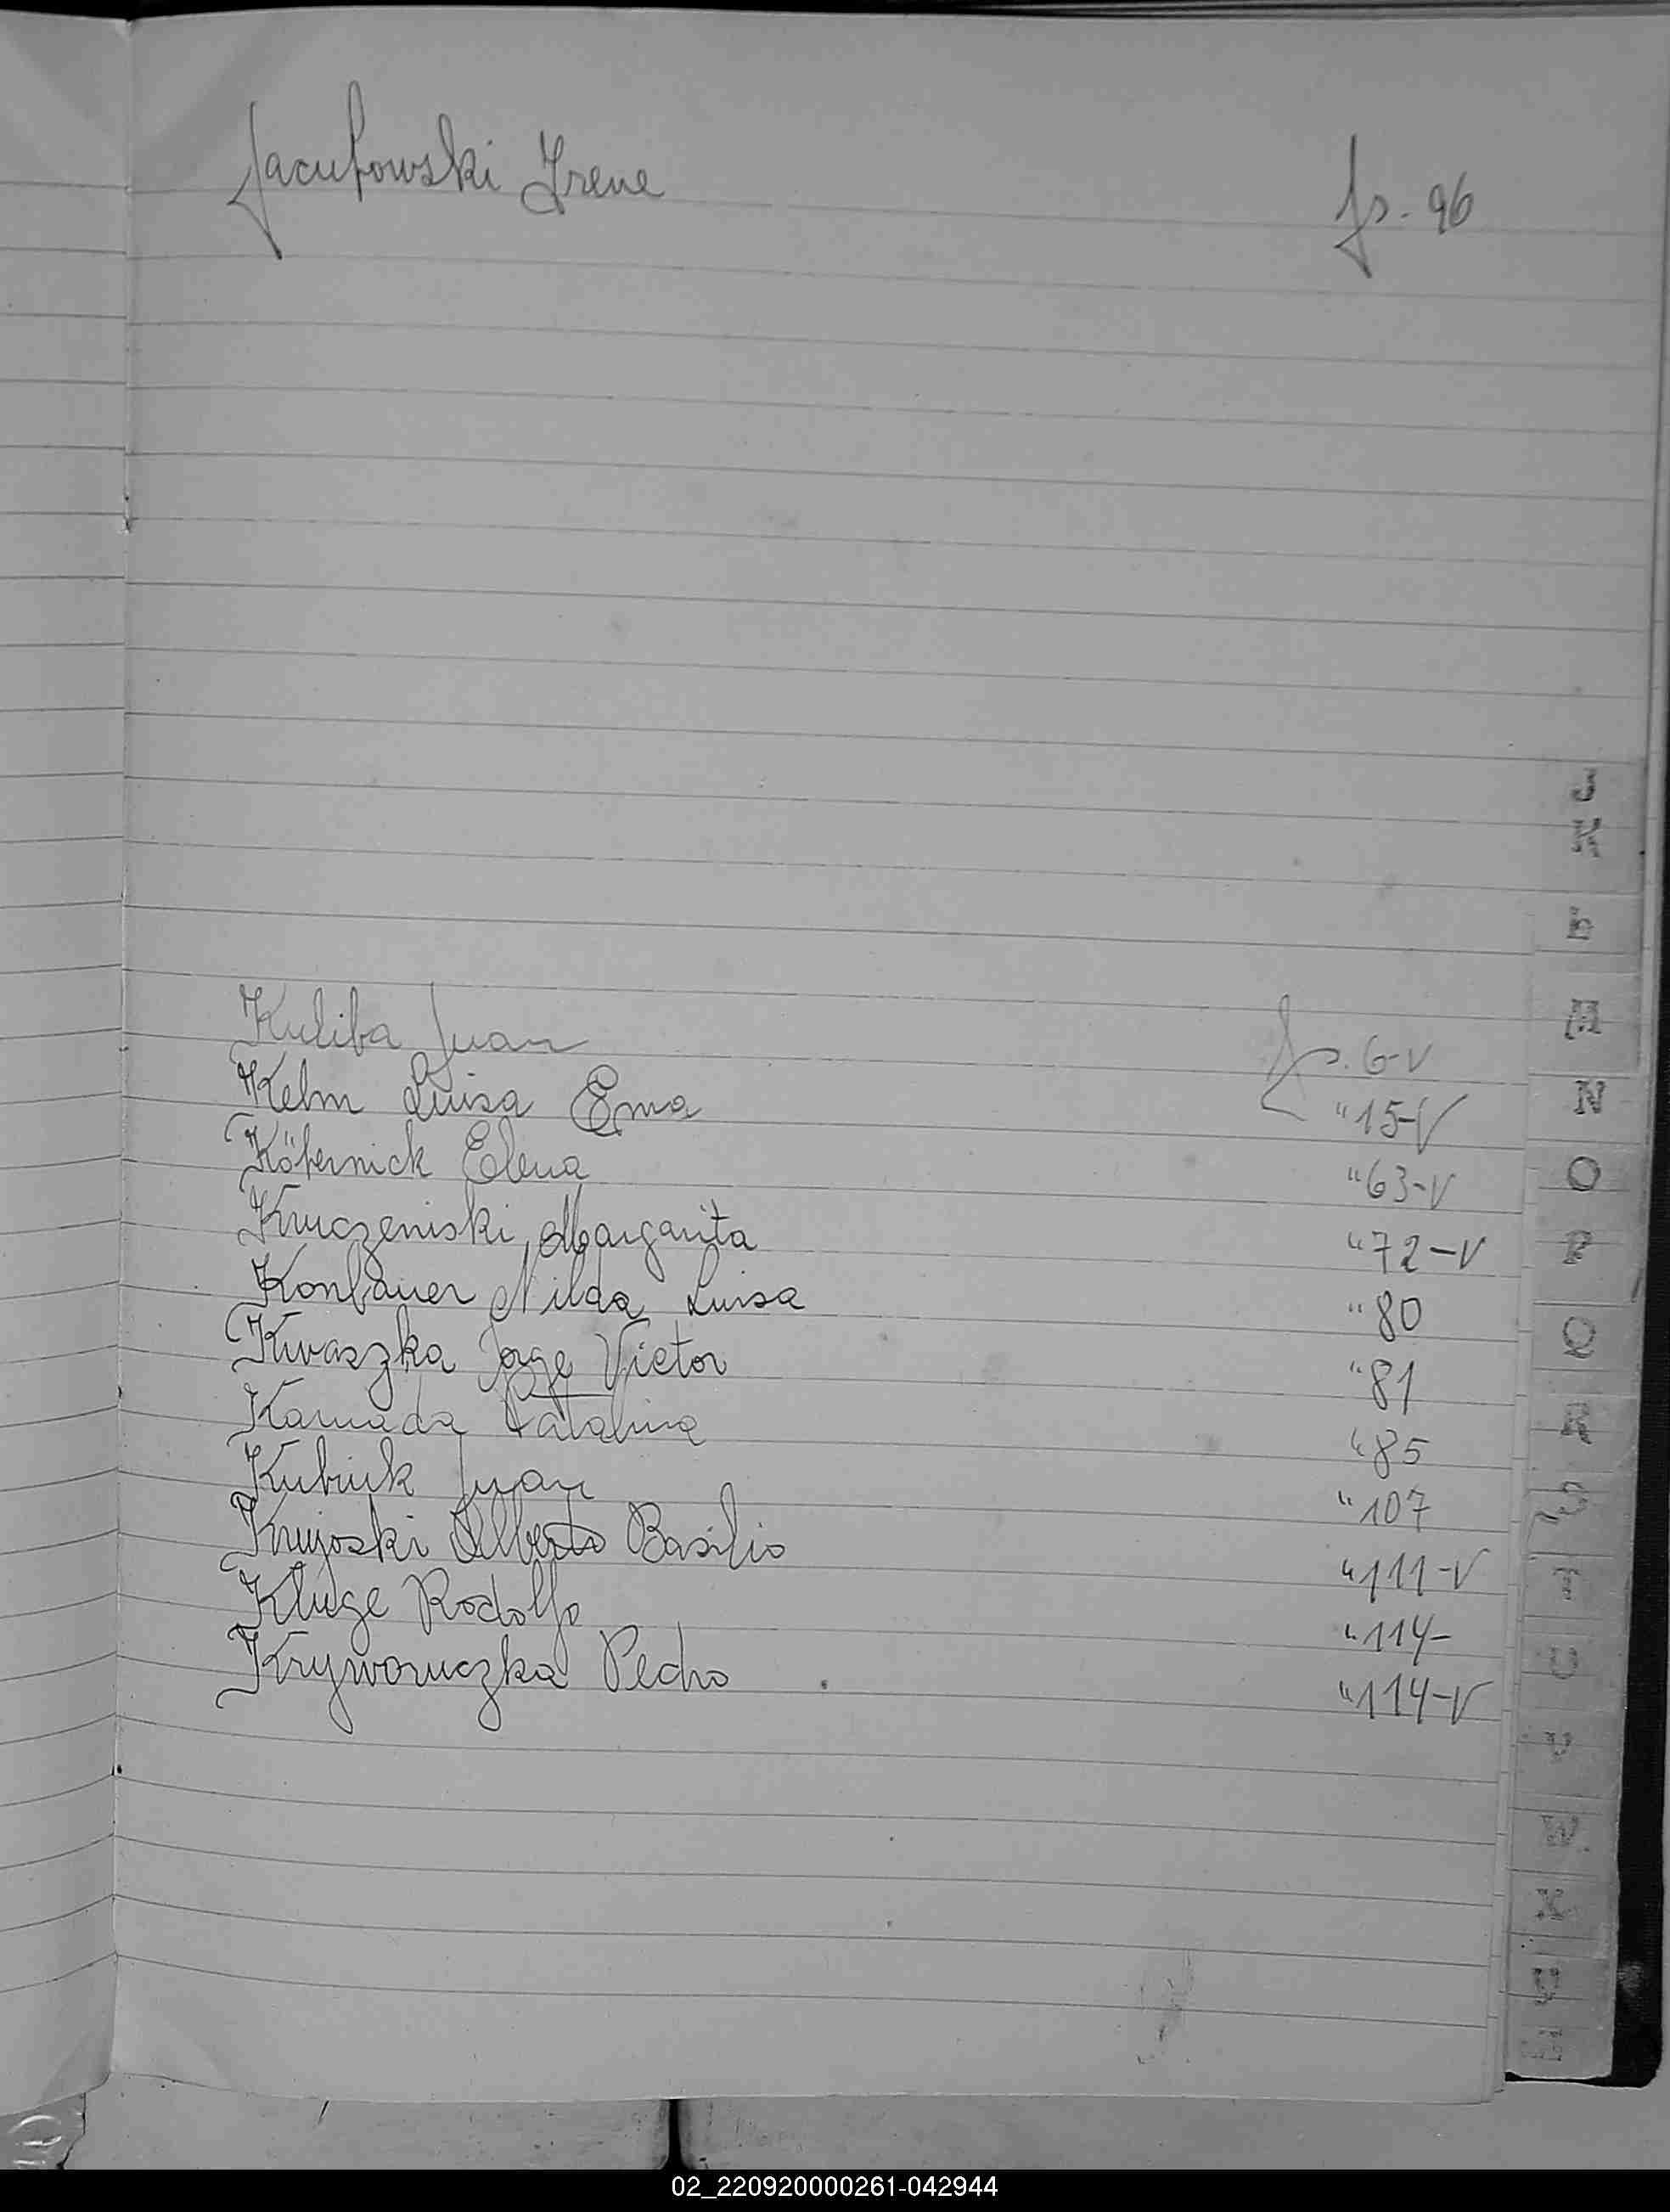 Jacubowski Irene fs. 96
Kuliba Juan fs. 6-V
Kelm Luisa Ema " 15-V
Köbernick Elena " 63-V
Kruczeniski, Margarita " 72-V
Konbauer Nilda Luisa " 80
Kwaszka Jorge Victor " 81
Kamada Catalina " 85
Kubiuk Juan " 107
Krujoski Alberto Basilio " 111-V
Kluge Rodolfo " 114-
Kryworuczka Pedro . " 114-V
N
O
P
Q
R
02_220920000261-042944